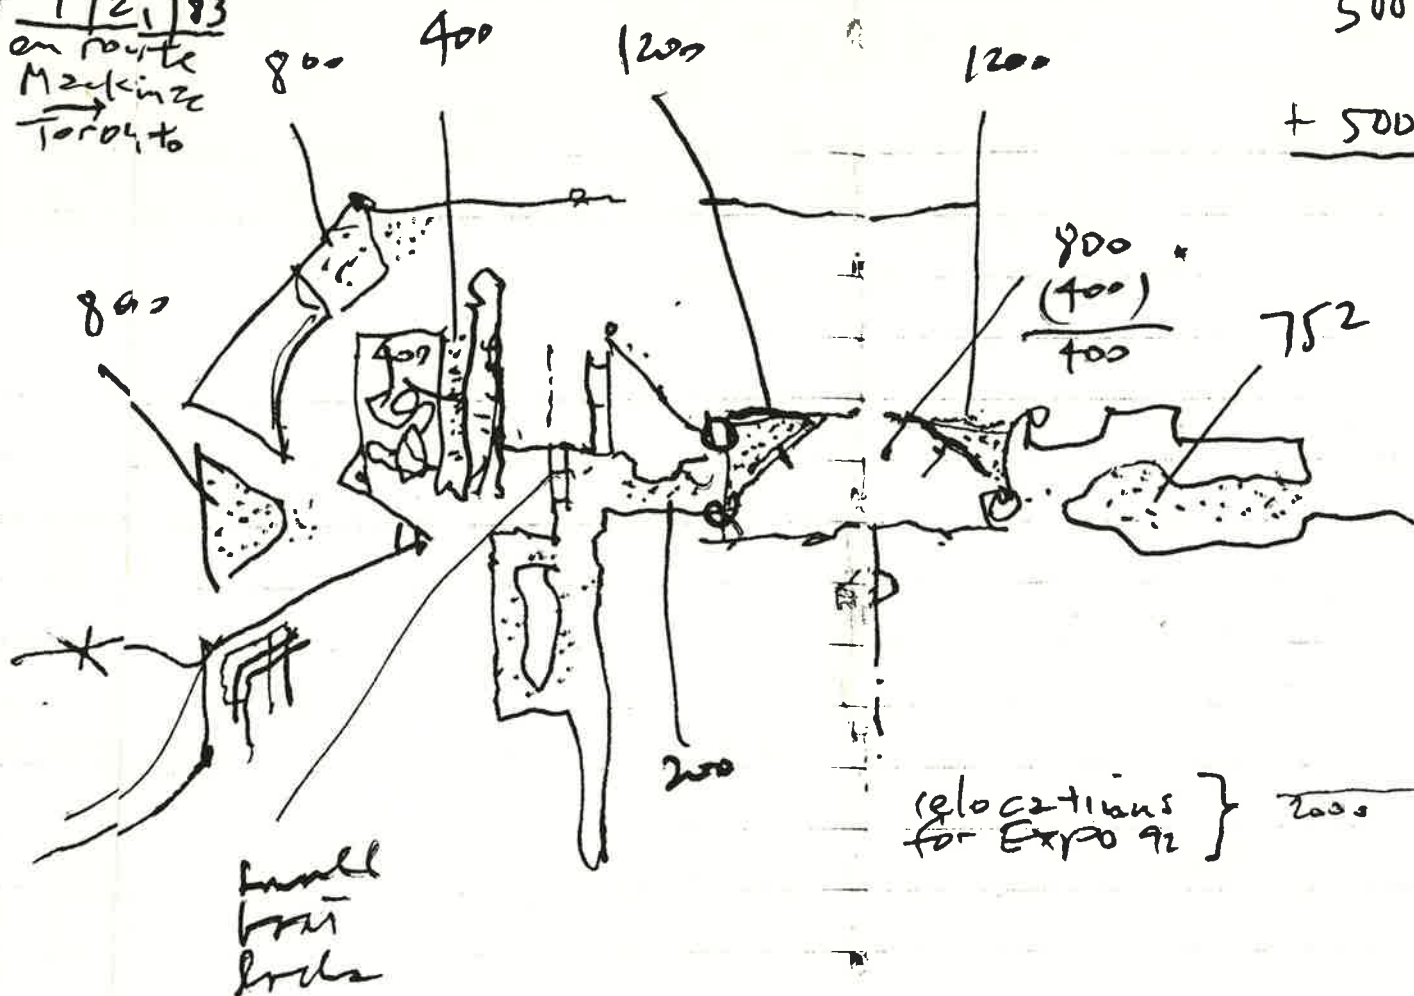 1 | 2 1 | 83
en route
Mackinac
→
Toronto
800
400
1200
1200
500
+ 500
800
(400)
400
752
800
400
200
relocations
for Expo 92
2000
small
boat
locks